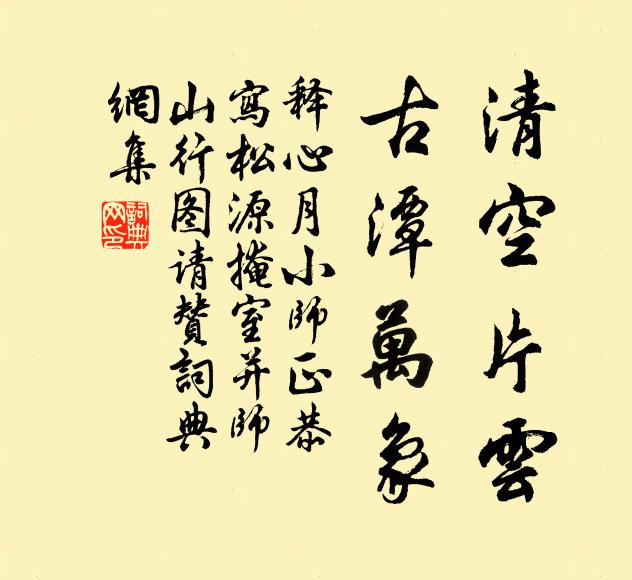 清空片雲
古潭萬象
释心月小師正恭
寫松源掩室并師
山行图请賛詞典
網集
詞典
网印